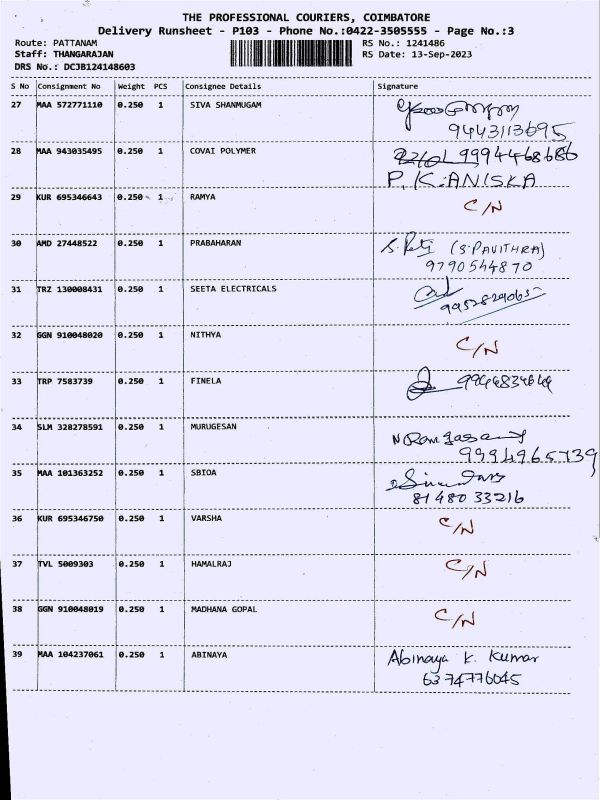 THE PROFESSIONAL COURIERS, COIMBATORE
Delivery Runsheet - P103 - Phone No.:0422-3505555 - Page No.:3
Route: PATTANAM
Staff: THANGARAJAN
DRS No.: DCJB124148603
RS No.: 1241486
RS Date: 13-Sep-2023
S No Consignment No Weight PCS Consignee Details Signature
27 MAA 572771110 0.250 1 SIVA SHANMUGAM
9443113695
28 MAA 943035495 0.250 1 COVAI POLYMER 9994468686
P. K. ANISKA
29 KUR 695346643 0.250 1 RAMYA C/N
30 AMD 27448522 0.250 1 PRABAHARAN (S.PAVITHRA)
9790544870
31 TRZ 130008431 0.250 1 SEETA ELECTRICALS
32 GGN 910048020 0.250 1 NITHYA C/N
33 TRP 7583739 0.250 1 FINELA
34 SLM 328278591 0.250 1 MURUGESAN
9994965739
35 MAA 101363252 0.250 1 SBIOA
81480 33216
36 KUR 695346750 0.250 1 VARSHA C/N
37 TVL 5009303 0.250 1 HAMALRAJ C/N
38 GGN 910048019 0.250 1 MADHANA GOPAL C/N
39 MAA 104237061 0.250 1 ABINAYA Abinaya K. Kumar
6374776045